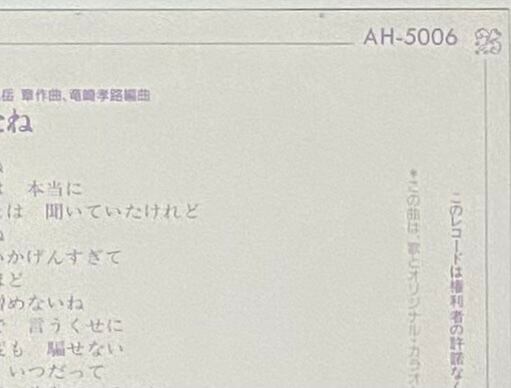 AH-5006
岳 章作曲、竜崎孝路編曲
たね
ね
は 本当に
とは 聞いていたけれど
ね
いかげんすぎて
ほど
憎めないね
で 言うくせに
度も 騙せない
いつだって
*この曲は、歌とオリジナル・カラオ
このレコードは権利者の許諾な